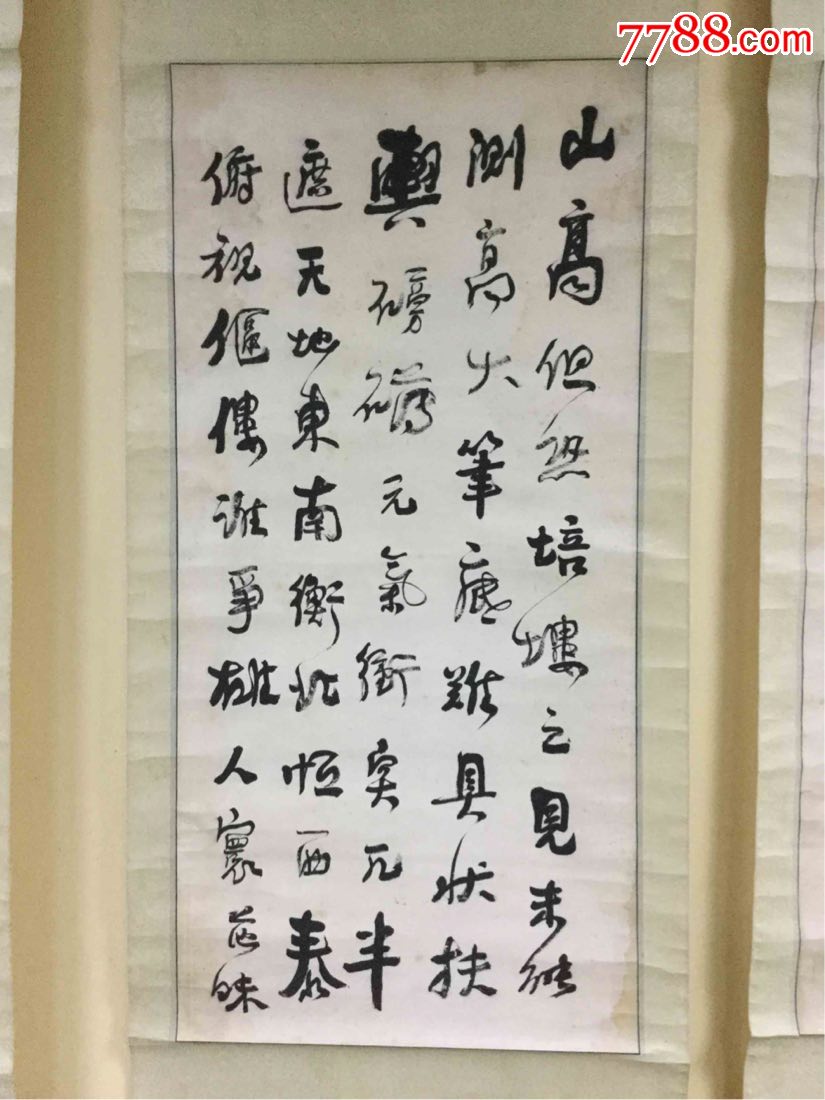 7788.com
山高但恐培塿之見未能
測高大筆底難具状扶
輿磅礴元氣衝突兀半
遮天地東南衡北恒西泰
俯視傴僂誰爭雄人寰茫昧